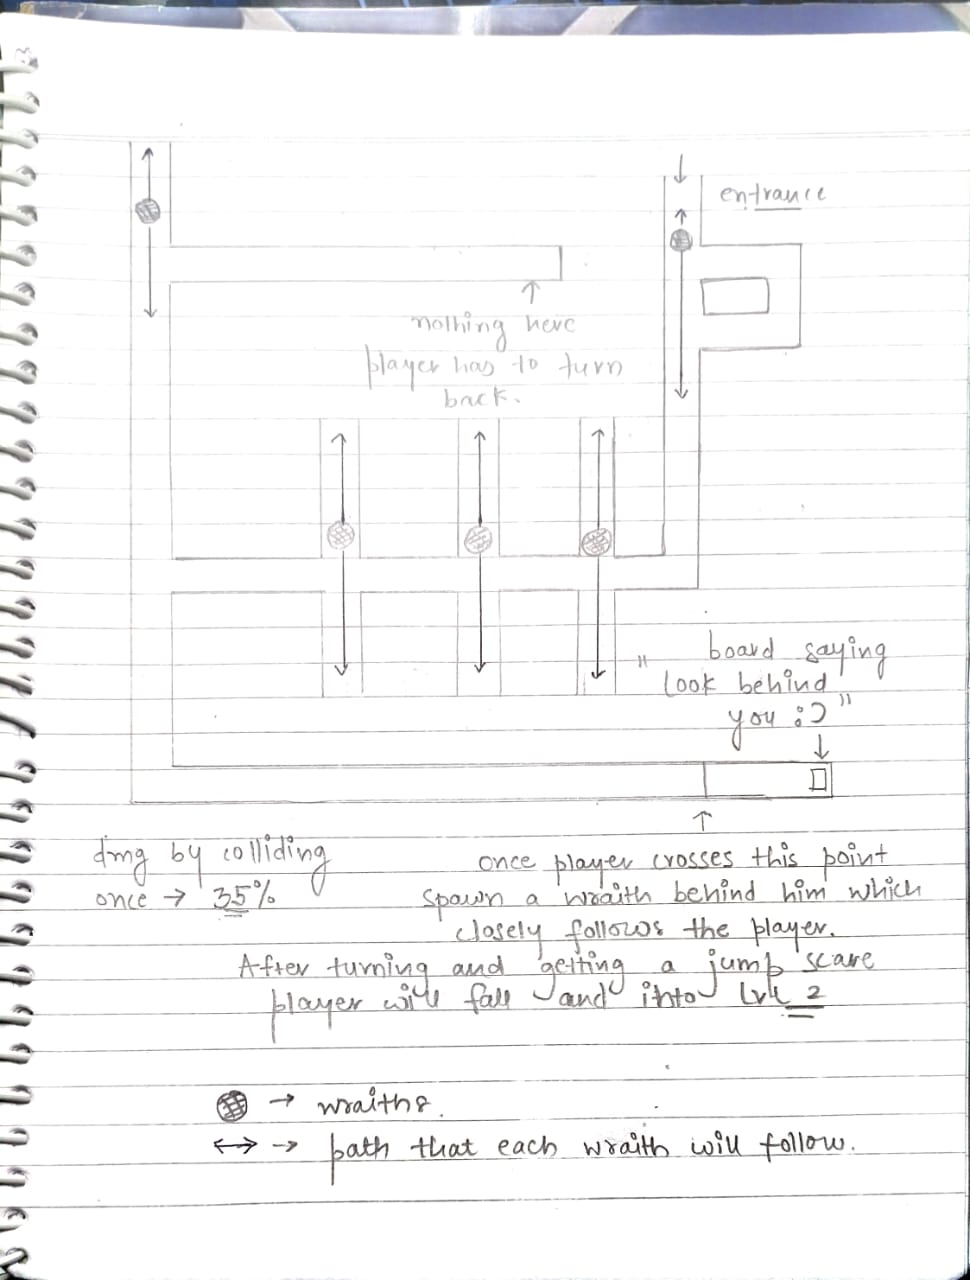 entrance
nothing here
player has to turn
back.
board saying
"look behind
you :)"
dmg by colliding
once → 35%
once player crosses this point
spawn a wraith behind him which
closely follows the player.
After turning and getting a jump scare
player will fall and into lvl 2
→ wraiths.
↔ → path that each wraith will follow.